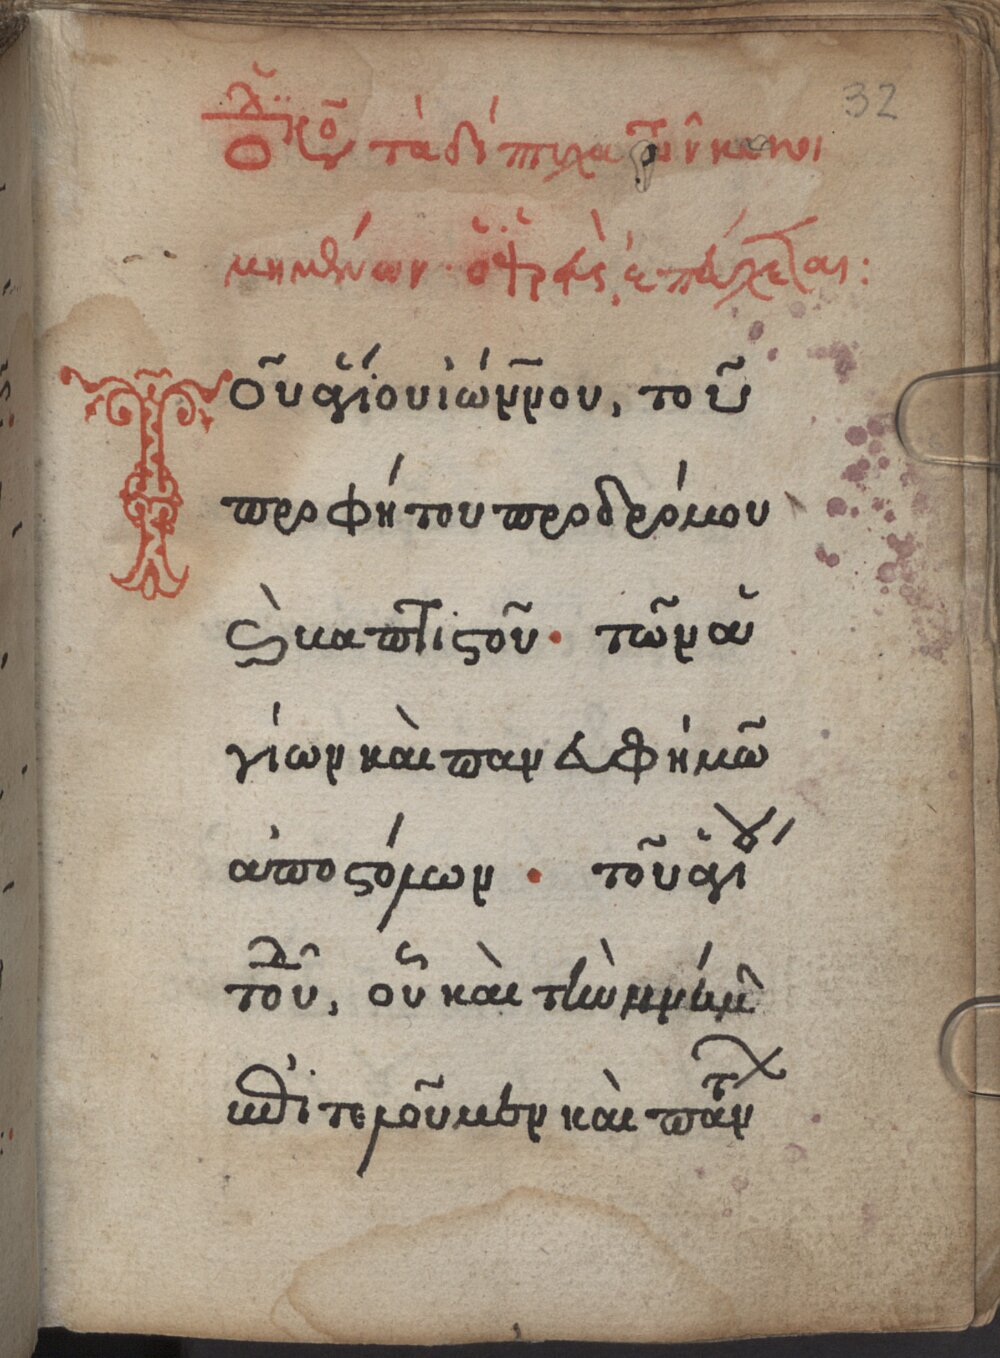 32
τὰ δίπτυχα τῶν κεκοι
μημένων· ὁ ἱερεὺς ἐπεύχεται:
Τοῦ ἁγίου ἰωάννου, τοῦ
προφήτου προδρόμου
καὶ βαπτιστοῦ· τῶν ἁ
γίων καὶ πανευφήμων
ἀποστόλων· τοῦ ἁγίου
τοῦ, οὗ καὶ τὴν μνήμην
ἐπιτελοῦμεν καὶ πάντων